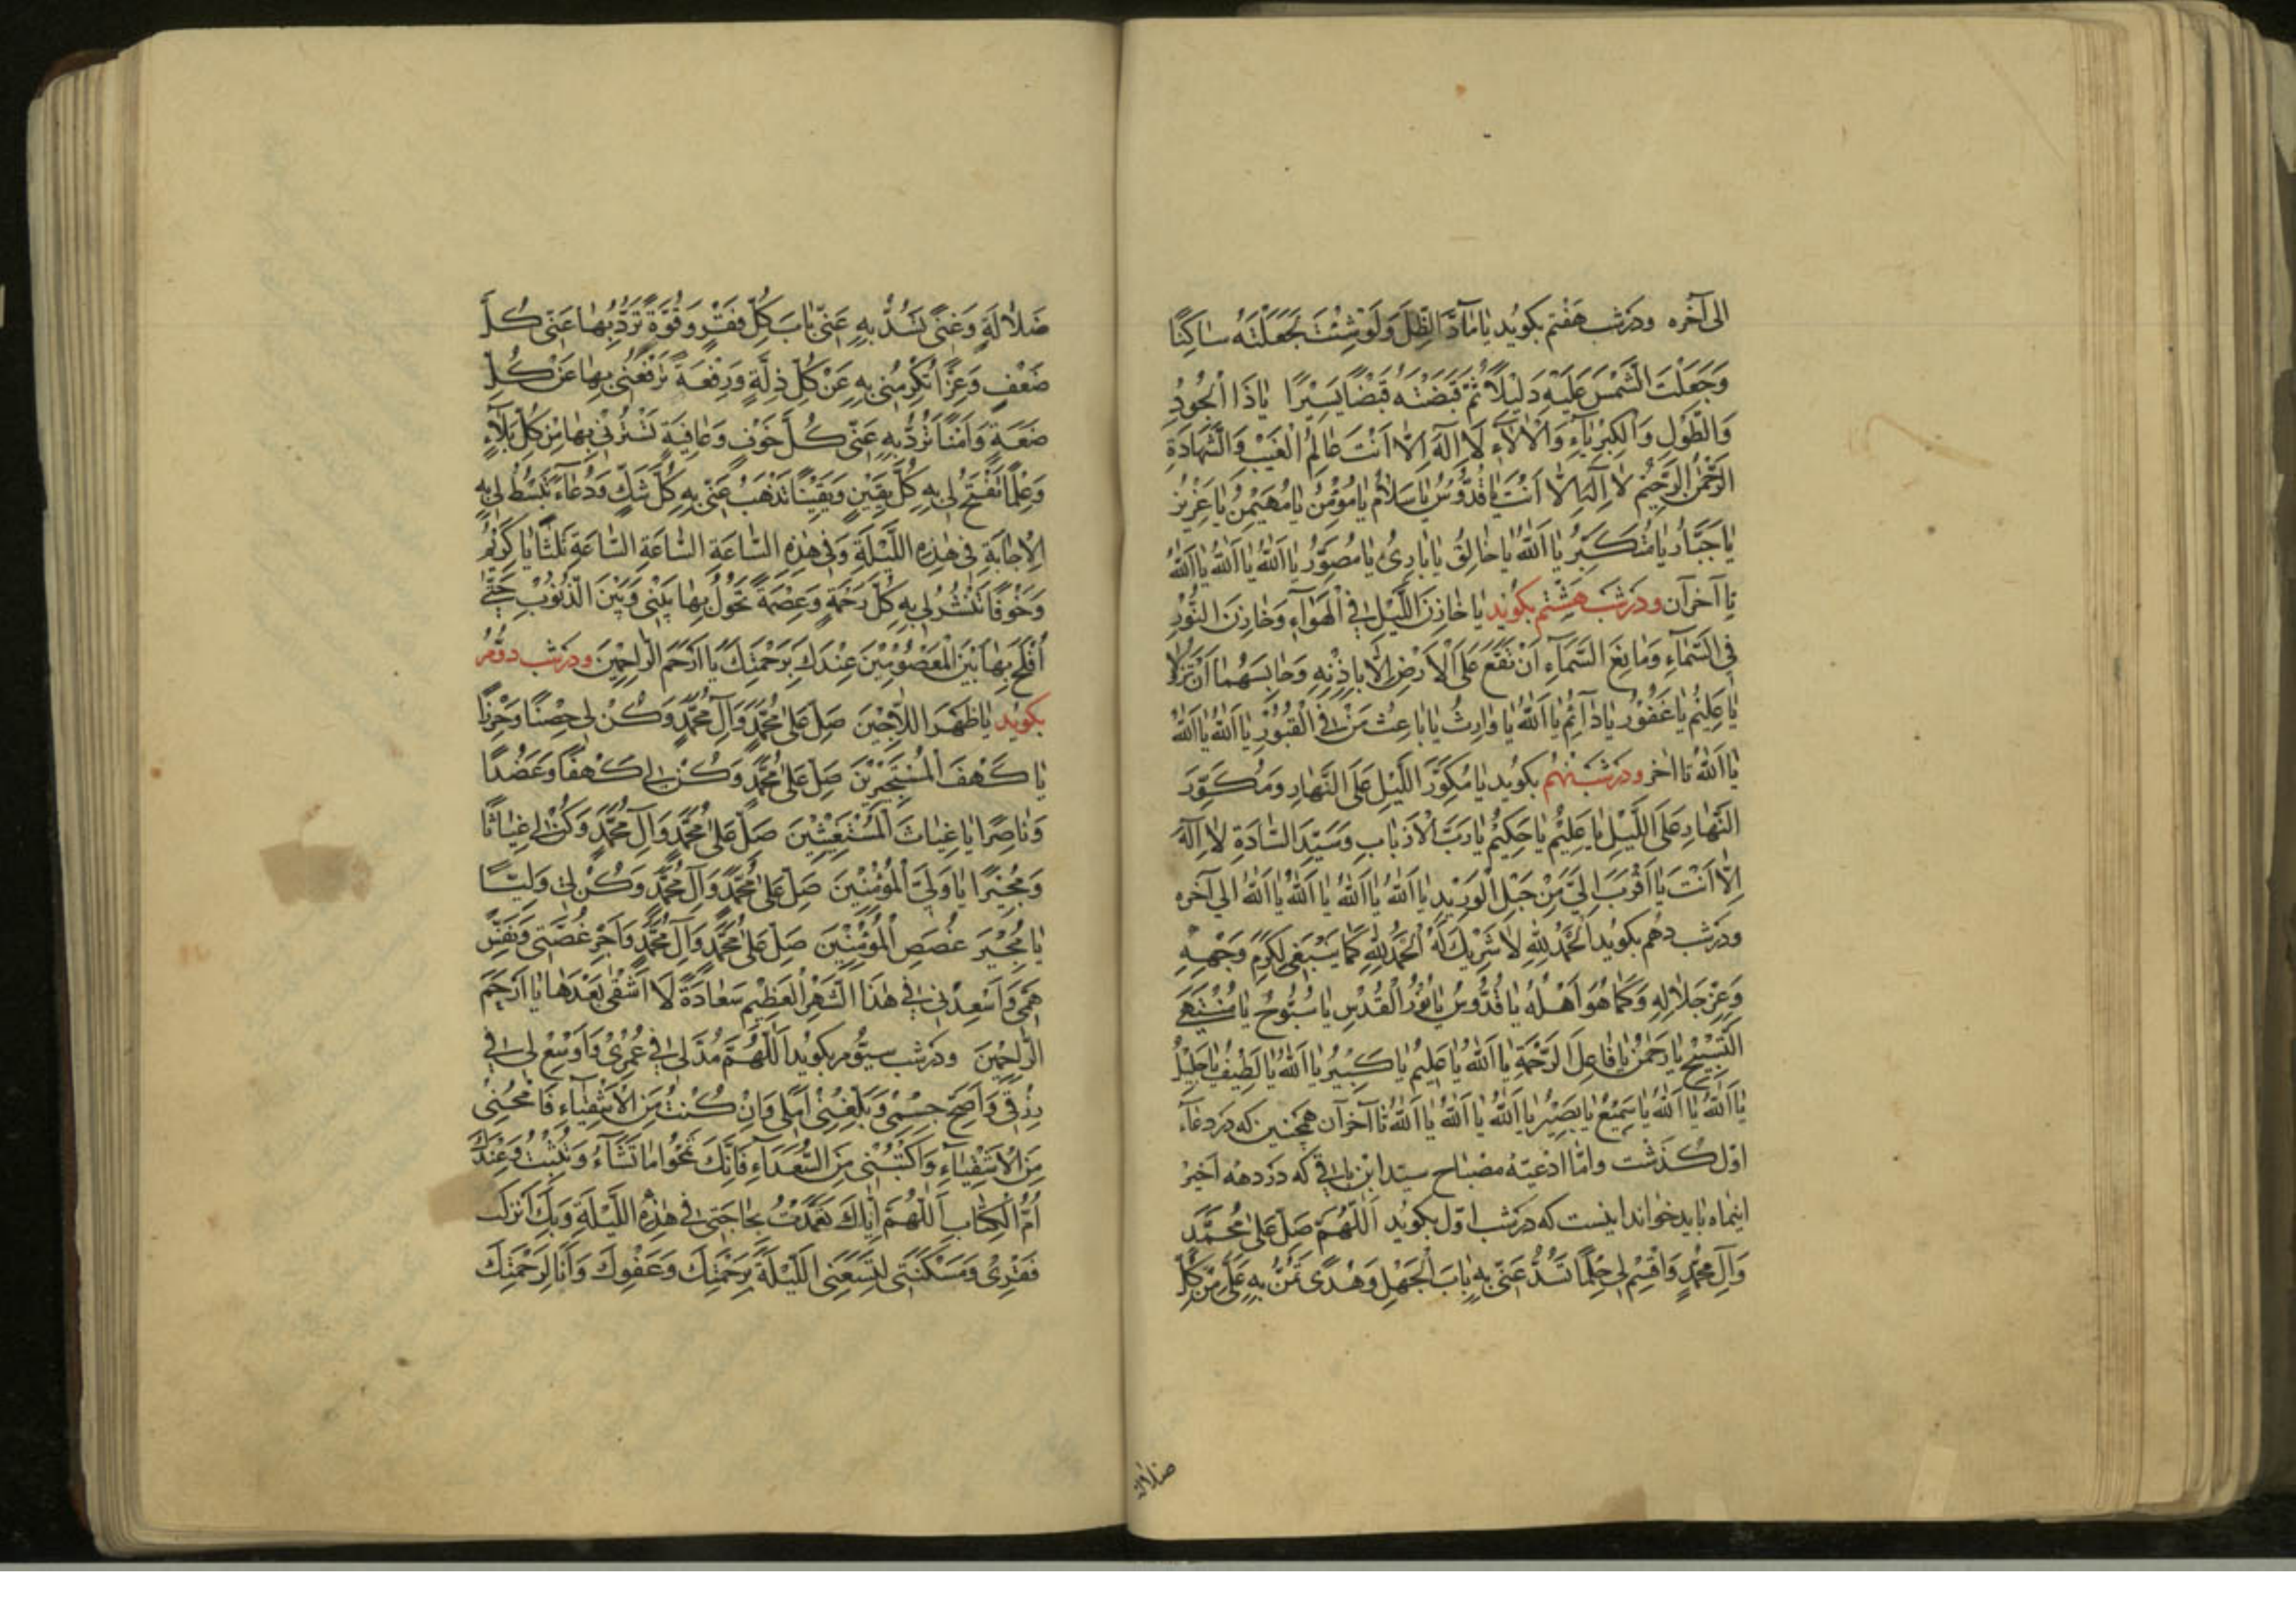 الى آخره ودرشب هفتم بكويد يا مَآدَّ الظِّلِّ وَلَوْ شِئْتَ لَجَعَلْتَهُ ساكِنًا
وَجَعَلْتَ الشَّمْسَ عَلَيْهِ دَلِيْلًا ثُمَّ قَبَضْتَهُ قَبْضًا يَسِيْرًا يا ذَا الْجُوْدِ
وَالطَّوْلِ وَالْكِبْرِيآءِ وَالْاٰلآءِ لَا اِلٰهَ اِلَّا اَنْتَ عٰالِمُ الْغَيْبِ وَالشَّهادَةِ
الرَّحْمٰنُ الرَّحِيْمُ لا اِلٰهَ اِلَّا اَنْتَ يا قُدُّوْسُ يا سَلامُ يا مُؤْمِنُ يا مُهَيْمِنُ يا عَزِيْزُ
يا جَبَّارُ يا مُتَكَبِّرُ يا اَللّٰهُ يا خالِقُ يا بارِئُ يا مُصَوِّرُ يا اَللّٰهُ يا اَللّٰهُ يا اَللّٰهُ
تا آخرآن ودرشب هشتم بكويد يا خازِنَ اللَّيْلِ فِى الْهَوٰآءِ وَخازِنَ النُّوْرِ
فِى السَّمآءِ وَمانِعَ السَّمآءِ اَنْ تَقَعَ عَلَى الْاَرْضِ اِلَّا بِاِذْنِهِ وَحابِسَهُما اَنْ تَزُوْلا
يا عَلِيْمُ يا غَفُوْرُ يا دآئِمُ يا اَللّٰهُ يا وارِثُ يا باعِثَ مَنْ فِى الْقُبُوْرِ يا اَللّٰهُ يا اَللّٰهُ
يا اَللّٰهُ تا اخر ودرشب نهم بكويد يا مُكَوِّرَ اللَّيْلِ عَلَى النَّهارِ وَمُكَوِّرَ
النَّهارِ عَلَى اللَّيْلِ يا عَلِيْمُ يا حَكِيْمُ يا رَبَّ الْاَرْبابِ وَسَيِّدَ السّادَةِ لا اِلٰهَ
اِلَّا اَنْتَ يا اَقْرَبَ اِلَيَّ مِنْ حَبْلِ الْوَرِيْدِ يا اَللّٰهُ يا اَللّٰهُ يا اَللّٰهُ يا اَللّٰهُ الى آخره
ودرشب دهم بكويد اَلْحَمْدُ لِلّٰهِ لا شَرِيْكَ لَهُ اَلْحَمْدُ لِلّٰهِ كَما يَنْبَغِى لِكَرَمِ وَجْهِهِ
وَعِزِّ جَلالِهِ وَكَما هُوَ اَهْلُهُ يا قُدُّوسُ يا نُوْرَ الْقُدْسِ يا سُبُّوْحُ يا مُنْتَهَى
التَّسْبِيْحِ يا رَحْمٰنُ يا فاعِلَ الرَّحْمَةِ يا اَللّٰهُ يا عَلِيْمُ يا كَبِيْرُ يا اَللّٰهُ يا لَطِيْفُ يا جَلِيْلُ
يا اَللّٰهُ يا اَللّٰهُ يا سَمِيْعُ يا بَصِيْرُ يا اَللّٰهُ يا اَللّٰهُ يا اَللّٰهُ تا آخرآن همچنين كه در دعآء
اوّل كذشت وامّا ادعيهٔ مصباح سيّد ابن باقى كه در دههٔ اخير
اينماه بايد خواند اينست كه درشب اوّل بكويد اَللّٰهُمَّ صَلِّ عَلىٰ مُحَمَّدٍ
وَآلِ مُحَمَّدٍ وَاقْسِمْ لِى حِلْمًا تَسُدُّ عَنِّى بِهِ بابَ الْجَهْلِ وَهُدًى تَمُنُّ بِهِ عَلَىَّ مِنْ كُلِّ
ضلالة
ضَلالَةٍ وَغِنًى تَسُدُّ بِهِ عَنِّى بابَ كُلِّ فَقْرٍ وَقُوَّةً تَرُدُّ بِها عَنِّى كُلَّ
ضَعْفٍ وَعِزًّا تُكْرِمُنِى بِهِ عَنْ كُلِّ ذِلَّةٍ وَرِفْعَةً تَرْفَعُنِى بِها عَنْ كُلِّ
ضَعَةٍ وَاَمْنًا تَرُدُّ بِهِ عَنِّى كُلَّ خَوْفٍ وَعافِيَةً تَسْتُرُنِى بِها مِنْ كُلِّ بَلآءٍ
وَعِلْمًا تَفْتَحُ لِى بِهِ كُلَّ يَقِيْنٍ وَيَقِيْنًا تَذْهَبُ عَنِّى بِهِ كُلَّ شَكٍّ وَدُعآءً تَبْسُطُ لِى بِهِ
الْاِجابَةَ فِى هٰذِهِ اللَّيْلَةِ وَفِى هٰذِهِ السّاعَةِ السّاعَةِ السّاعَةِ ثَلثًا يا كَرِيْمُ
وَخَوْفًا تَنْشُرُ لِى بِهِ كُلَّ رَحْمَةٍ وَعِصْمَةً تَحُوْلُ بِها بَيْنِى وَبَيْنَ الذُّنُوْبِ حَتّى
اُفْلِحَ بِها بَيْنَ الْمَعْصُوْمِيْنَ عِنْدَكَ بِرَحْمَتِكَ يا اَرْحَمَ الرّاحِمِيْنَ ودرشب دوّم
بكويد يا ظَهْرَ اللّاجِيْنَ صَلِّ عَلىٰ مُحَمَّدٍ وَآلِ مُحَمَّدٍ وَكُنْ لِى حِصْنًا وَحِرْزًا
يا كَهْفَ الْمُسْتَجِيْرِيْنَ صَلِّ عَلىٰ مُحَمَّدٍ وَكُنْ لِى كَهْفًا وَعَضُدًا
وَناصِرًا يا غِياثَ الْمُسْتَغِيْثِيْنَ صَلِّ عَلىٰ مُحَمَّدٍ وَآلِ مُحَمَّدٍ وَكُنْ لِى غِياثًا
وَمُجِيْرًا يا وَلِيَّ الْمُؤْمِنِيْنَ صَلِّ عَلىٰ مُحَمَّدٍ وَآلِ مُحَمَّدٍ وَكُنْ لِى وَلِيًّا
يا مُجِيْرَ غُصَصِ الْمُؤْمِنِيْنَ صَلِّ عَلىٰ مُحَمَّدٍ وَآلِ مُحَمَّدٍ وَاَجِرْ غُصَّتِى وَنَفِّسْ
هَمِّى وَاَسْعِدْنِى فِى هٰذَا الشَّهْرِ الْعَظِيْمِ سَعادَةً لَا اَشْقٰى بَعْدَها يا اَرْحَمَ
الرّاحِمِيْنَ ودرشب سيّوم بكويد اَللّٰهُمَّ مُدَّ لِى فِى عُمْرِىْ وَاَوْسِعْ لِى فِى
رِزْقِى وَاَصِحَّ جِسْمِىْ وَبَلِّغْنِىْ اَمَلِى وَاِنْ كُنْتُ مِنَ الْاَشْقِيآءِ فَامْحُنِىْ
مِنَ الْاَشْقِيآءِ وَاكْتُبْنِى مِنَ السُّعَدآءِ فَاِنَّكَ تَمْحُوْا ما تَشآءُ وَتُثْبِتُ وَعِنْدَكَ
اُمُّ الْكِتابِ اَللّٰهُمَّ اِيّاكَ تَعَمَّدْتُ بِحاجَتِى فِى هٰذِهِ اللَّيْلَةِ وَبِكَ اَنْزَلْتُ
فَقْرِىْ وَمَسْكَنَتِى لِتَسَعَنِى اللَّيْلَةَ بِرَحْمَتِكَ وَعَفْوِكَ وَاَنَا لِرَحْمَتِكَ